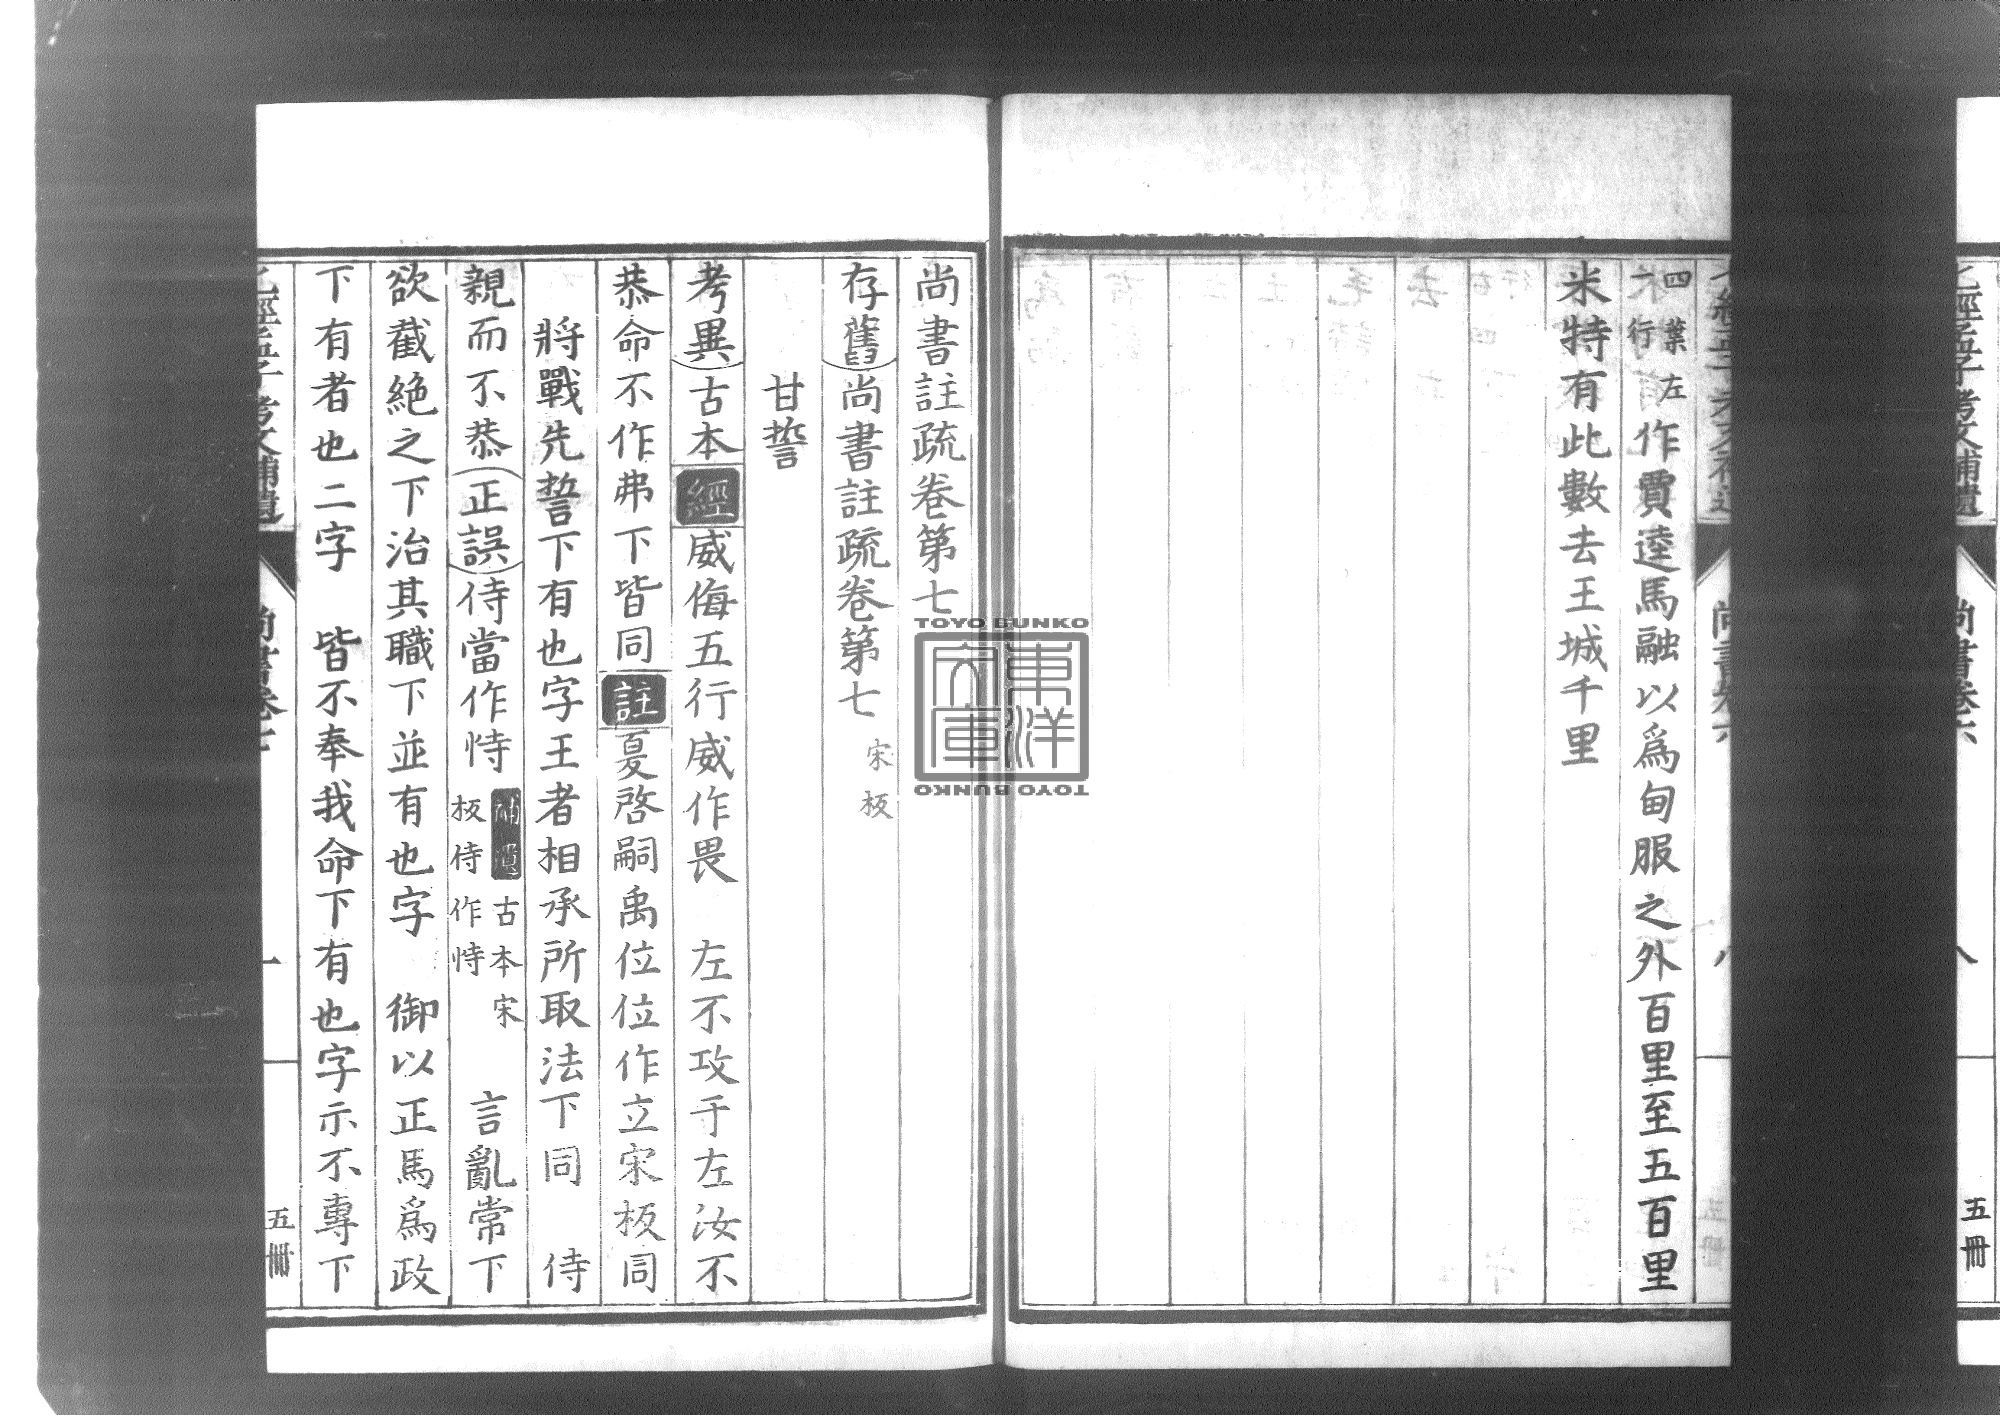 四葉左
一行
作賈逵馬融以爲甸服之外百里至五百里
米特有此數去王城千里
尚書註疏卷第七
存舊尚書註疏卷第七宋板
甘誓
考異古本經威侮五行威作畏　左不攻于左汝不
恭命不作弗下皆同註夏啓嗣禹位位作立宋板同
將戰先誓下有也字王者相承所取法下同　侍
親而不恭正誤侍當作恃補遺古本宋板侍作恃　言亂常下
欲截絶之下治其職下並有也字　御以正馬爲政
下有者也二字　皆不奉我命下有也字示不專下
七經孟子考文補遺
尚書卷七
一
五冊
七經孟子考文補遺
尚書卷六
八
五冊
TOYO BUNKO
東洋文庫
TOYO BUNKO